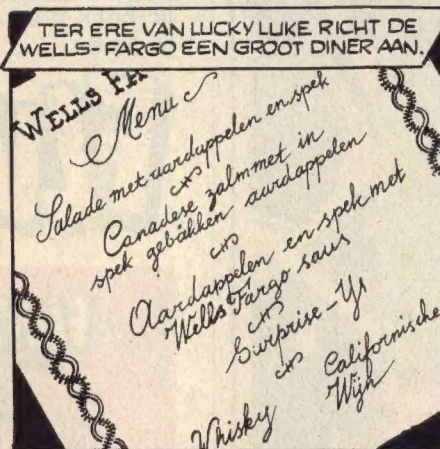 TER ERE VAN LUCKY LUKE RICHT DE
WELLS-FARGO EEN GROOT DINER AAN.
WELLS FA
Menu
Salade met aardappelen en spek
Canadese zalm met in
spek gebakken aardappelen
Aardappelen en spek met
Wells Fargo saus
Surprise-Ys
Whisky
Californische
Wijn